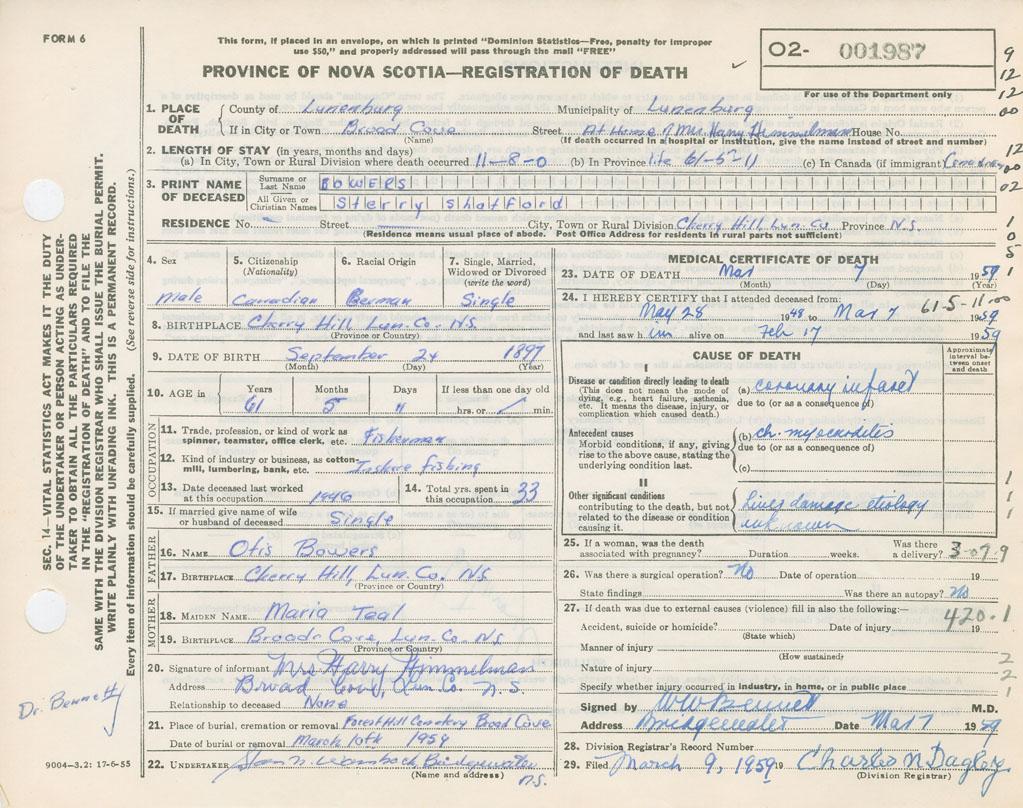 FORM 6
This form, if placed in an envelope, on which is printed "Dominion Statistics—Free, penalty for improper
use $50," and properly addressed will pass through the mail "FREE"
PROVINCE OF NOVA SCOTIA—REGISTRATION OF DEATH
O2- 001987
For use of the Department only
9
12
12
00
12
00
02
1
0
5
1
SEC. 14—VITAL STATISTICS ACT MAKES IT THE DUTY
OF THE UNDERTAKER OR PERSON ACTING AS UNDER-
TAKER TO OBTAIN ALL THE PARTICULARS REQUIRED
IN THE "REGISTRATION OF DEATH" AND TO FILE THE
SAME WITH THE DIVISION REGISTRAR WHO SHALL ISSUE THE BURIAL PERMIT.
WRITE PLAINLY WITH UNFADING INK. THIS IS A PERMANENT RECORD.
Every item of information should be carefully supplied. (See reverse side for instructions.)
1. PLACE OF DEATH County of Lunenburg Municipality of Lunenburg
If in City or Town Broad Cove Street At Home of Mrs. Harry Himmelman House No.
(Name) (If death occurred in a hospital or institution, give the name instead of street and number)
2. LENGTH OF STAY (in years, months and days)
(a) In City, Town or Rural Division where death occurred 11-8-0 (b) In Province life 61-5-11 (c) In Canada (if immigrant)
3. PRINT NAME OF DECEASED Surname or Last Name BOWERS
All Given or Christian Names Sterry Shatford
RESIDENCE No. Street City, Town or Rural Division Cherry Hill, Lun. Co Province N.S.
(Residence means usual place of abode. Post Office Address for residents in rural parts not sufficient)
4. Sex 5. Citizenship (Nationality) 6. Racial Origin 7. Single, Married, Widowed or Divorced (write the word)
Male Canadian German Single
8. BIRTHPLACE Cherry Hill Lun. Co. N.S.
(Province or Country)
9. DATE OF BIRTH September 24 1897
(Month) (Day) (Year)
10. AGE in Years Months Days If less than one day old
61 5 11 hrs. or min.
OCCUPATION
11. Trade, profession, or kind of work as spinner, teamster, office clerk, etc. Fisherman
12. Kind of industry or business, as cotton-mill, lumbering, bank, etc. Inshore fishing
13. Date deceased last worked at this occupation 1946 14. Total yrs. spent in this occupation 33
15. If married give name of wife or husband of deceased Single
FATHER
16. NAME Otis Bowers
17. BIRTHPLACE Cherry Hill, Lun. Co. N.S.
(Province or Country)
MOTHER
18. MAIDEN NAME Maria Teal
19. BIRTHPLACE Broad Cove, Lun. Co. N.S.
(Province or Country)
20. Signature of informant Mrs Harry Himmelman
Address Broad Cove, Lun Co. N.S.
Relationship to deceased None
21. Place of burial, cremation or removal Forest Hill Cemetery Broad Cove
Date of burial or removal March 10th 1959
22. UNDERTAKER Bridgewater
(Name and address) N.S.
Dr. Bennett
9004—3.2: 17-6-55
MEDICAL CERTIFICATE OF DEATH
23. DATE OF DEATH Mar 7 1959
(Month) (Day) (Year)
24. I HEREBY CERTIFY that I attended deceased from: 61-5-11-00
May 28 1948 to Mar 7 1959
and last saw him alive on Feb 17 1959
CAUSE OF DEATH
Approximate interval between onset and death
I
Disease or condition directly leading to death (a) coronary infarct
(This does not mean the mode of dying, e.g., heart failure, asthenia, etc. It means the disease, injury, or complication which caused death.) due to (or as a consequence of)
Antecedent causes (b) ch. myocarditis
Morbid conditions, if any, giving rise to the above cause, stating the underlying condition last. due to (or as a consequence of)
(c)
II
Other significant conditions contributing to the death, but not related to the disease or condition causing it. Liver damage etiology
unknown
1
1
1
25. If a woman, was the death associated with pregnancy? Duration weeks. Was there a delivery? 3-07.9
26. Was there a surgical operation? No Date of operation 19
State findings Was there an autopsy? No
27. If death was due to external causes (violence) fill in also the following:— 420.1
Accident, suicide or homicide? Date of injury 19
(State which)
Manner of injury
(How sustained)
2
2
1
Nature of injury
Specify whether injury occurred in industry, in home, or in public place
Signed by W W Bennett M.D.
Address Bridgewater Date Mar 7 1959
28. Division Registrar's Record Number
29. Filed March 9, 1959 19 Charles N Dagley
(Division Registrar)